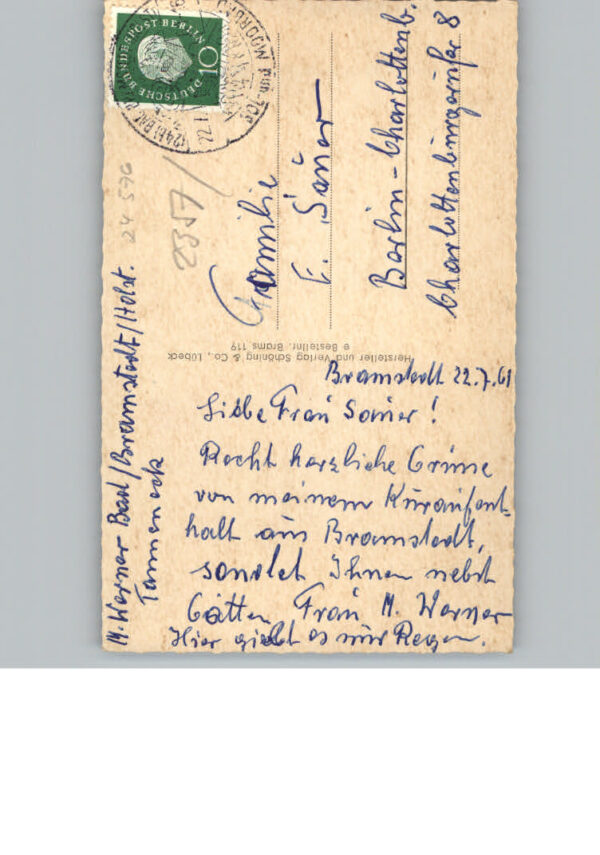 Bramstedt 22.7.61
Liebe Frau Sauer!
Recht herzliche Grüsse
von meinem Kuraufent-
halt aus Bramstedt,
sendet Ihnen nebst
Gatten Frau M. Werner
Hier giebt es nur Regen.
M. Werner Bad/Bramstedt/Holst.
Tanneneck
Familie
E. Sauer
Berlin-Charlottenb.
Charlottenburgerufer 8
Hersteller und Verlag Schöning & Co., Lübeck
e Bestellnr. Brams 119
DEUTSCHE BUNDESPOST BERLIN
10
2357/
24 576